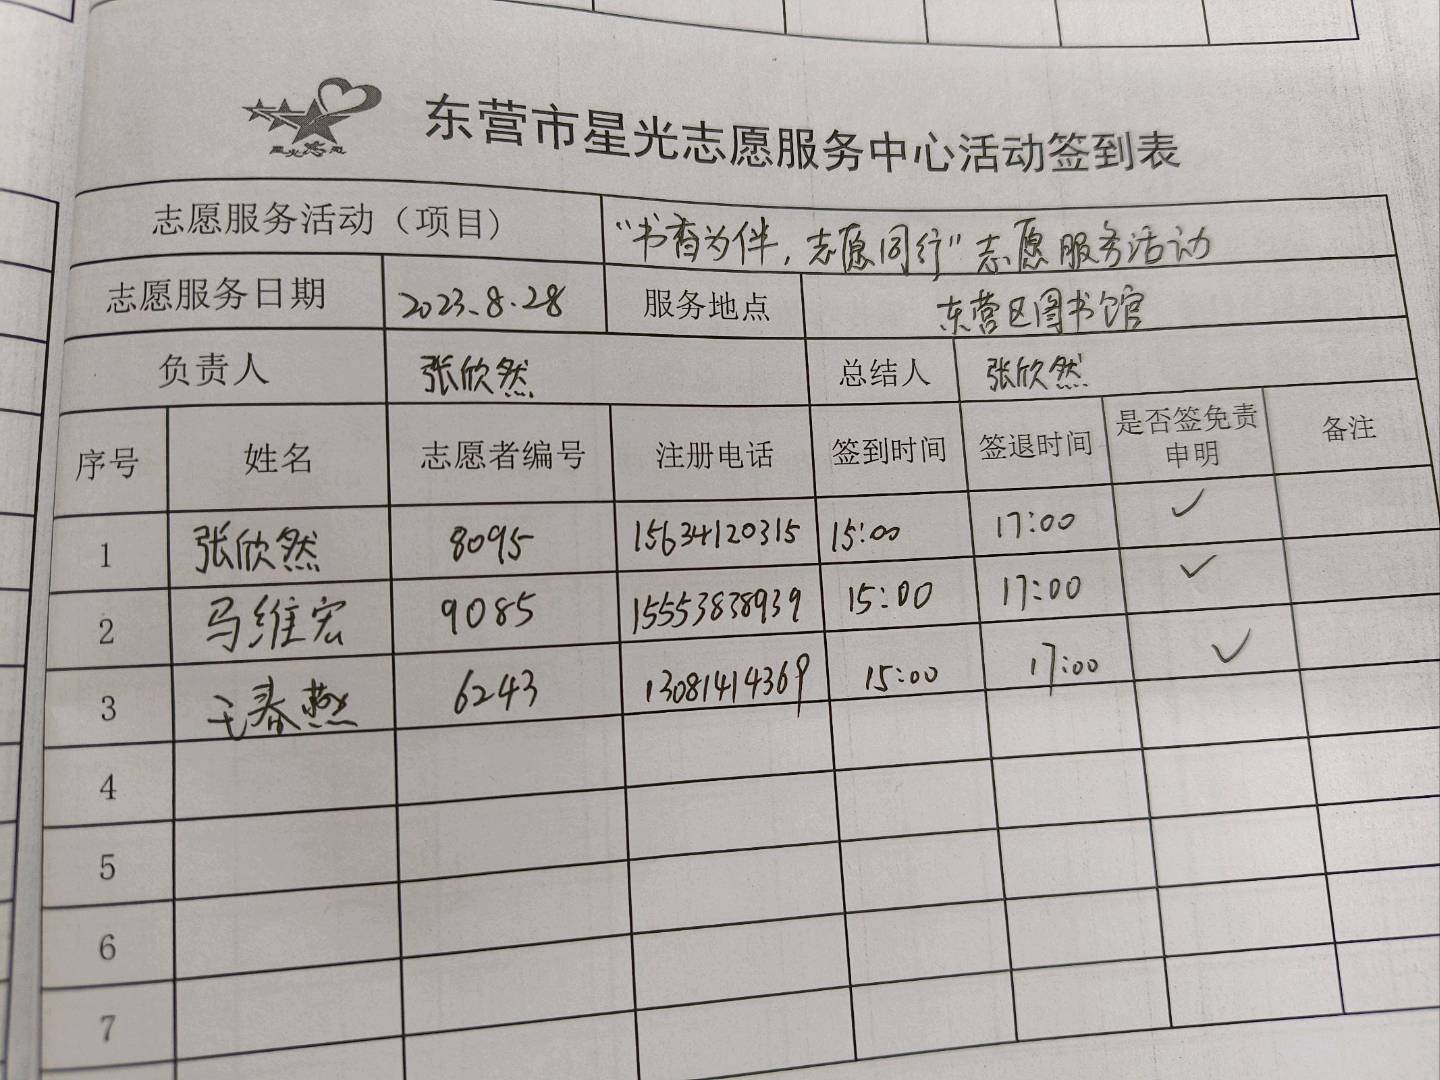 星光志愿
东营市星光志愿服务中心活动签到表
志愿服务活动（项目） “书香为伴，志愿同行”志愿服务活动
志愿服务日期 2023.8.28 服务地点 东营区图书馆
负责人 张欣然 总结人 张欣然
序号 姓名 志愿者编号 注册电话 签到时间 签退时间 是否签免责申明 备注
1 张欣然 8095 15634120315 15:00 17:00 ✓
2 马维宏 9085 15553838939 15:00 17:00 ✓
3 春燕 6243 13081414369 15:00 17:00 ✓
4
5
6
7